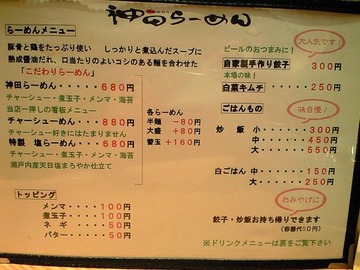 神田らーめん
らーめんメニュー
豚骨と鶏をたっぷり使い しっかりと煮込んだスープに
熟成醤油だれ、口当たりのよいコシのある麺を合わせた
「こだわりらーめん」
神田らーめん・・・・・680円
チャーシュー・煮玉子・メンマ・海苔
当店一押しの看板メニュー
チャーシューめん・・・880円
チャーシュー好きにはたまりません
特製 塩らーめん・・・680円
チャーシュー・煮玉子・メンマ・海苔
瀬戸内産天日塩まろやか仕立て
各らーめん
半麺 －80円
大盛 ＋80円
替玉 ＋160円
トッピング
メンマ・・・・100円
煮玉子・・・・100円
ネギ・・・・50円
バター・・・・50円
大人気です!
ビールのおつまみに!
自家製手作り餃子 300円
本場の味!
白菜キムチ 250円
ごはんもの
味自慢!
炒飯 小・・・・300円
中・・・・450円
大・・・・550円
白ごはん 中・・・・150円
大・・・・250円
おみやげに
餃子・炒飯お持ち帰りできます
(容器代50円)
※ドリンクメニューは裏をご覧下さい